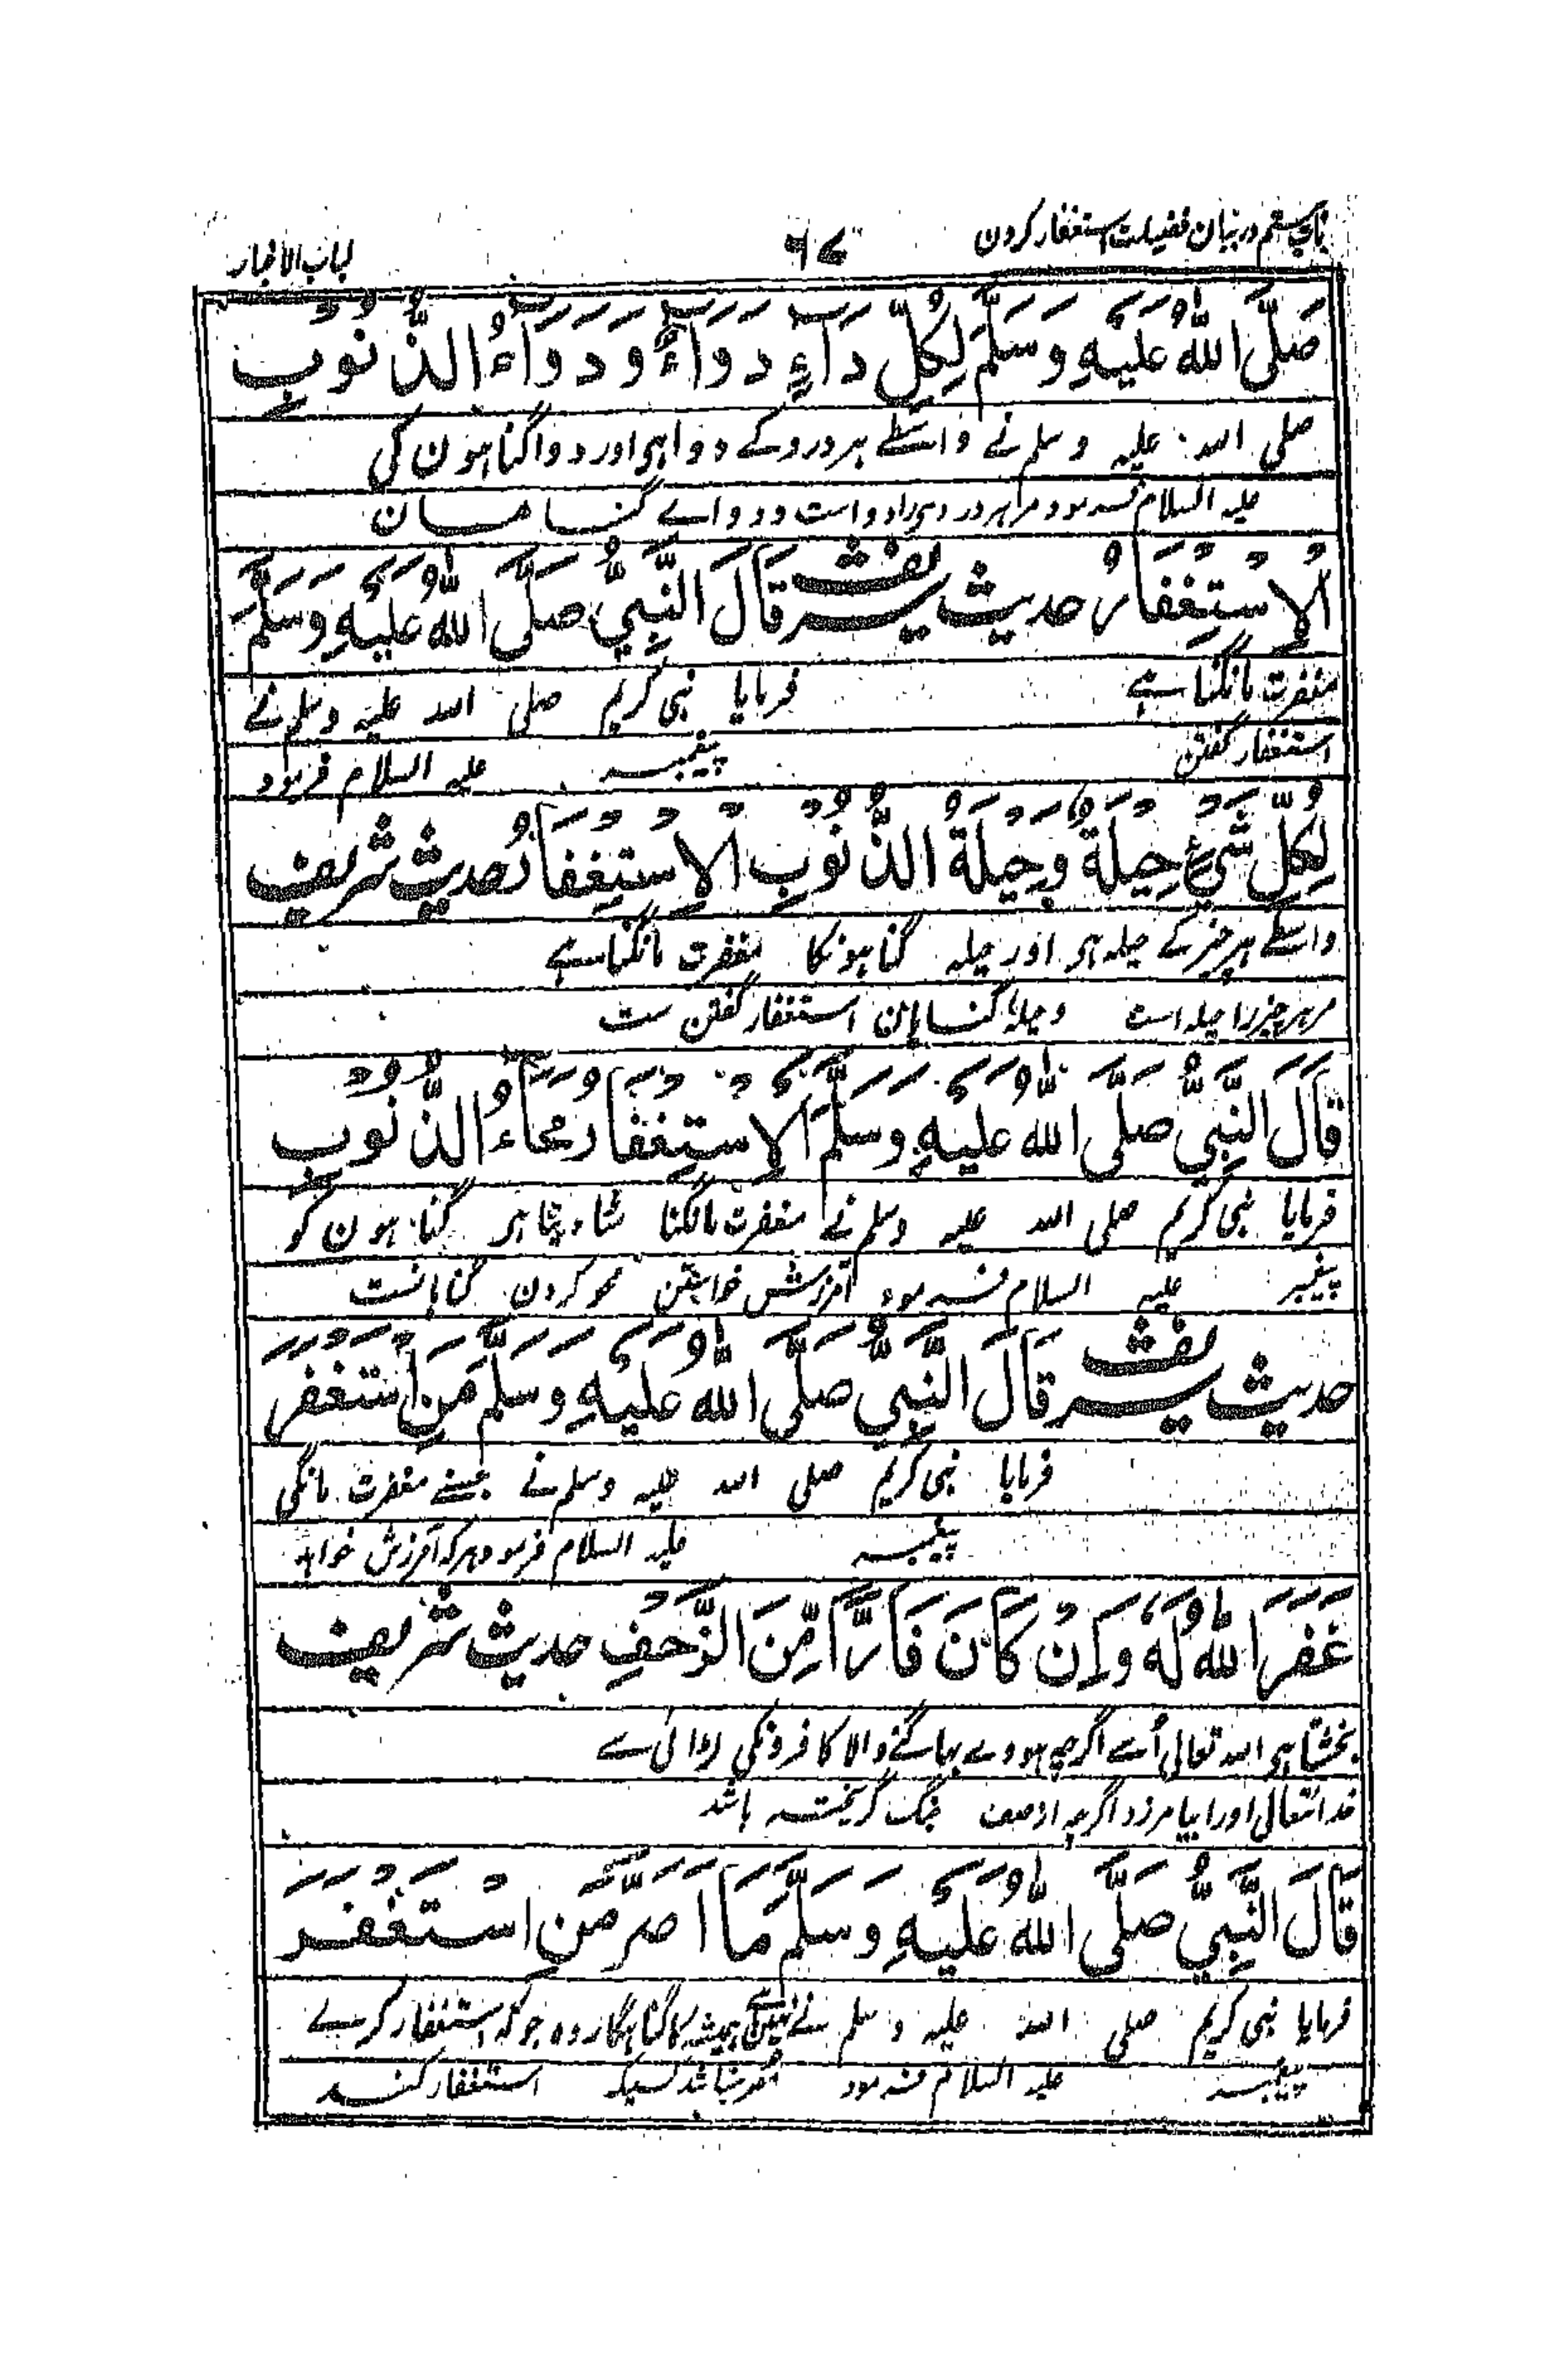 باب ہستم در بیان فضیلت استغفار کردن
۶۷
لباب الاخبار
صَلَّى اللّٰهُ عَلَيْهِ وَسَلَّمَ لِكُلِّ دَآءٍ دَوَآءٌ وَدَوَآءُ الذُّنُوْبِ
صلی اللہ علیہ وسلم نے واسطے ہر درد کے دوا ہی اور دوا گناہون کی
علیہ السلام فرمود مر ہر دردی را دوا است و دواے گناهان
الْاِسْتِغْفَارُ حدیث شریف قَالَ النَّبِيُّ صَلَّى اللّٰهُ عَلَيْهِ وَسَلَّمَ
مغفرت مانگنا ہے فرمایا نبی کریم صلی اللہ علیہ وسلم نے
استغفار گفتن پیغمبر علیہ السلام فرمود
لِكُلِّ شَيْءٍ حِيْلَةٌ وَحِيْلَةُ الذُّنُوْبِ الْاِسْتِغْفَارُ حدیث شریف
واسطے ہر چیز کے حیلہ ہی اور حیلہ گناہونکا مغفرت مانگنا ہے
مر ہر چیز را حیلہ است و حیلۂ گناہان استغفار گفتن ست
قَالَ النَّبِيُّ صَلَّى اللّٰهُ عَلَيْهِ وَسَلَّمَ اَلْاِسْتِغْفَارُ مَحَآءُ الذُّنُوْبِ
فرمایا نبی کریم صلی اللہ علیہ وسلم نے مغفرت مانگنا مٹا دیتا ہی گناہون کو
پیغمبر علیہ السلام فرمود آمرزش خواستن محو کردن گناہانست
حدیث شریف قَالَ النَّبِيُّ صَلَّى اللّٰهُ عَلَيْهِ وَسَلَّمَ مَنِ اسْتَغْفَرَ
فرمایا نبی کریم صلی اللہ علیہ وسلم نے جسنے مغفرت مانگی
پیغمبر علیہ السلام فرمود ہر کہ آمرزش خواہد
غَفَرَ اللّٰهُ لَهٗ وَاِنْ كَانَ فَارًّا مِّنَ الزَّحْفِ حدیث شریف
بخشتا ہی اللہ تعالی اُسے اگرچہ ہووے بھاگنے والا کافرونکی لڑائی سے
خدا تعالی اورا بیامرزد اگرچہ از صف جنگ گریختہ باشد
قَالَ النَّبِيُّ صَلَّى اللّٰهُ عَلَيْهِ وَسَلَّمَ مَا اَصَرَّ مَنِ اسْتَغْفَرَ
فرمایا نبی کریم صلی اللہ علیہ وسلم نے نہین ہے ہمیشہ کا گناہگار وہ جو کہ استغفار کرے
پیغمبر علیہ السلام فرمود مصر نباشد کسیکہ استغفار کند